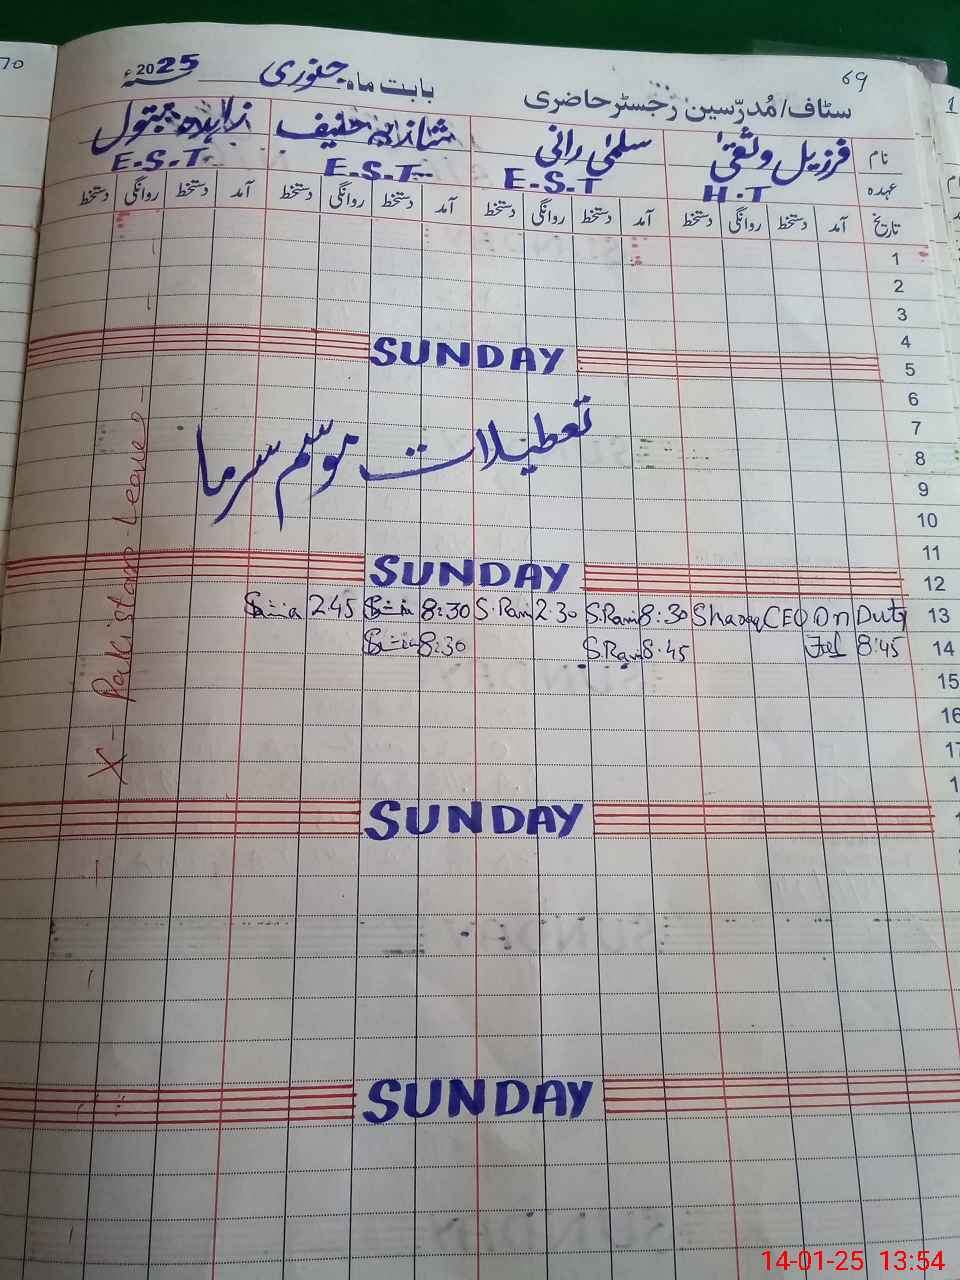 69
سٹاف/مُدرّسین رجسٹر حاضری بابت ماہ جنوری 2025ء
نام فرزیل وثقیٰ سلمیٰ رانی شازیہ حنیف زاہدہ بتول
عہدہ H.T E.S.T E.S.T E.S.T
تاریخ آمد دستخط روانگی دستخط آمد دستخط روانگی دستخط آمد دستخط روانگی دستخط آمد دستخط روانگی دستخط
1
2
3
4
SUNDAY
5
6
7
تعطیلات موسم سرما
8
9
10
11
SUNDAY
12
2.45 8:30 S.Rani 2.30 S.Rani 8:30 CEO On Duty 13
8:30 S.Rani 8.45 8:45 14
15
16
X - Pakistan Leave -
SUNDAY
SUNDAY
70
14-01-25 13:54